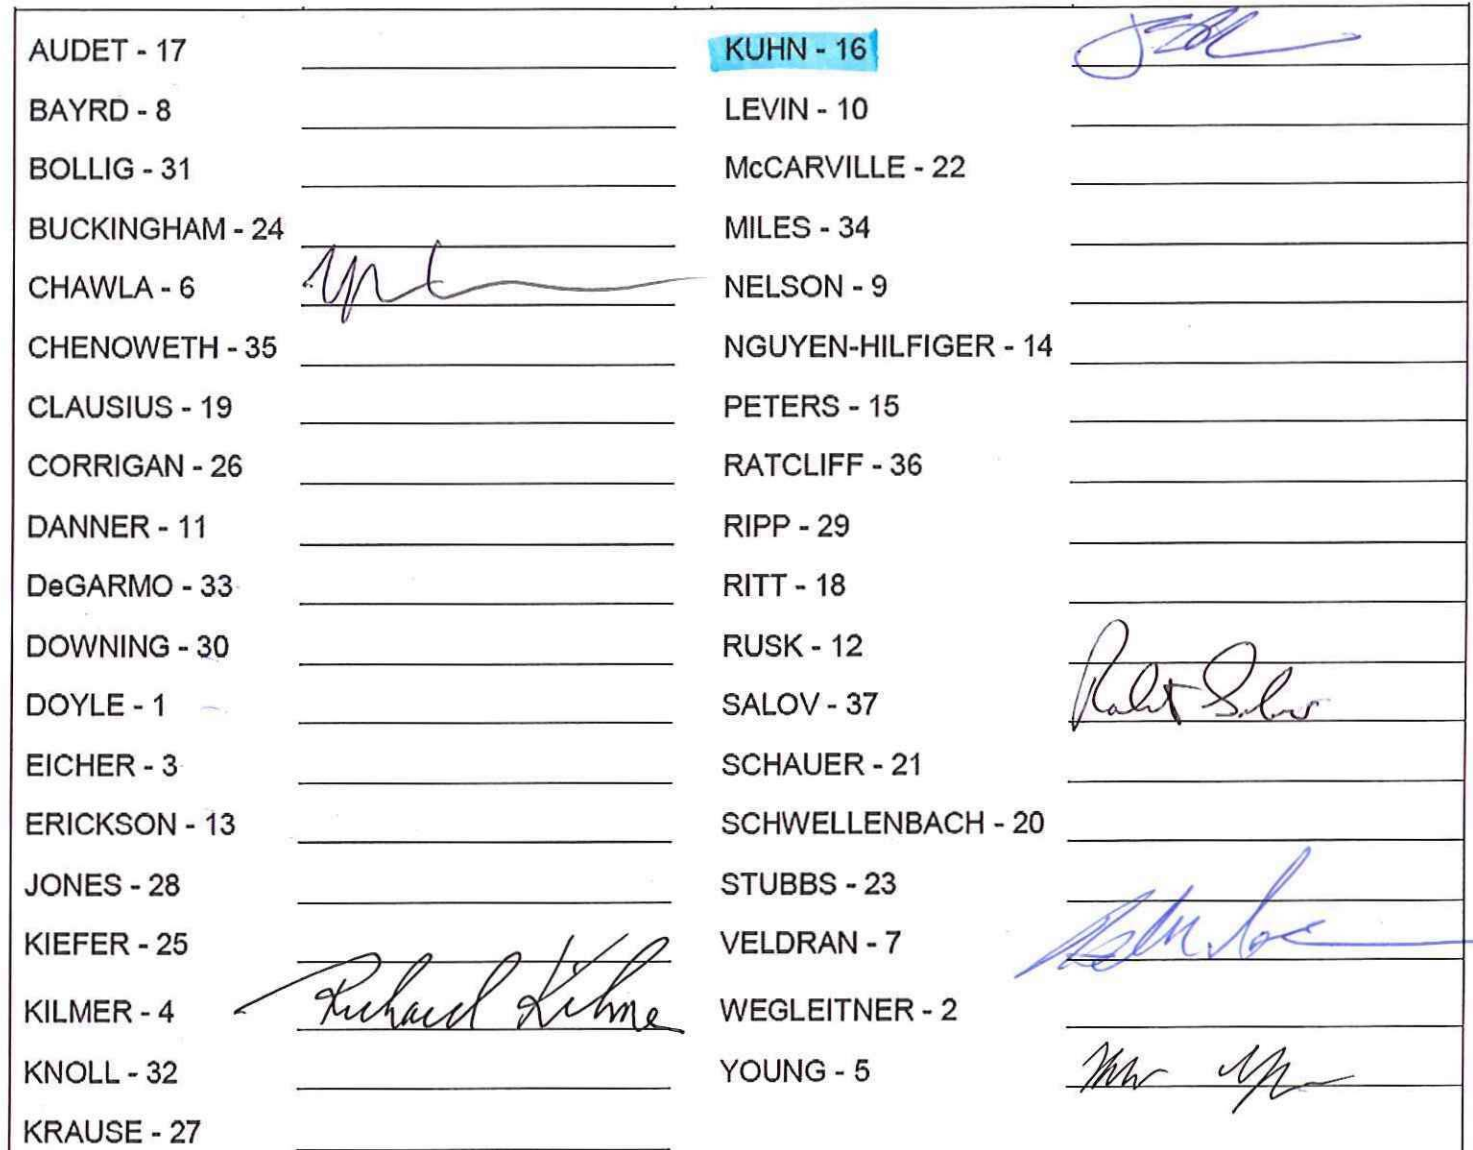 AUDET - 17
BAYRD - 8
BOLLIG - 31
BUCKINGHAM - 24
CHAWLA - 6
CHENOWETH - 35
CLAUSIUS - 19
CORRIGAN - 26
DANNER - 11
DeGARMO - 33
DOWNING - 30
DOYLE - 1
EICHER - 3
ERICKSON - 13
JONES - 28
KIEFER - 25
KILMER - 4 Richard Kilme
KNOLL - 32
KRAUSE - 27
KUHN - 16
LEVIN - 10
McCARVILLE - 22
MILES - 34
NELSON - 9
NGUYEN-HILFIGER - 14
PETERS - 15
RATCLIFF - 36
RIPP - 29
RITT - 18
RUSK - 12
SALOV - 37
SCHAUER - 21
SCHWELLENBACH - 20
STUBBS - 23
VELDRAN - 7
WEGLEITNER - 2
YOUNG - 5